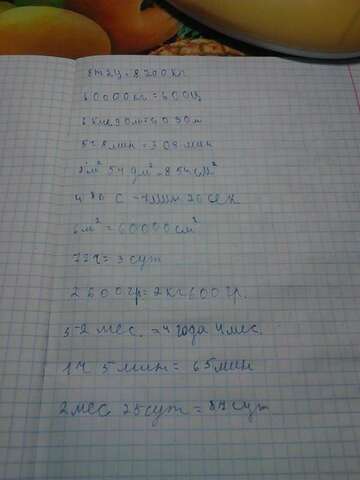 8т 2ц = 8 200кг
60000кг = 600ц
6км 90м = 6 090м
5ч 8мин = 308мин
8м² 54 дм² = 854дм²
480 с = мин 20 сек
6м² = 60000см²
72ч = 3 сут
2 600гр = 2кг600гр.
52 мес. = 4 года 4 мес.
1ч 5мин = 65мин
2мес 25сут = сут